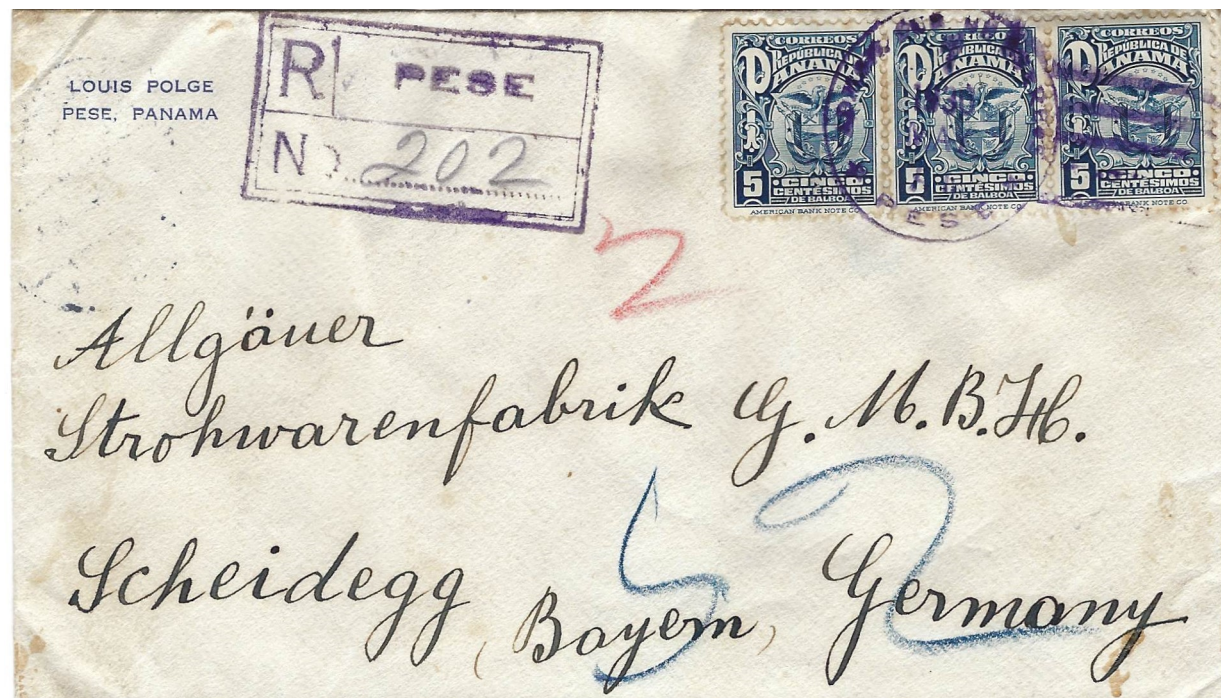 LOUIS POLGE
PESE, PANAMA
R PESE
No. 202
CORREOS
REPÚBLICA DE
PANAMA
5 CINCO
CENTÉSIMOS
DE BALBOA
AMERICAN BANK NOTE CO.
CORREOS
REPÚBLICA DE
PANAMA
5 CINCO
CENTÉSIMOS
DE BALBOA
AMERICAN BANK NOTE CO.
CORREOS
REPÚBLICA DE
PANAMA
5 CINCO
CENTÉSIMOS
DE BALBOA
BANK NOTE CO.
PESE
2
Allgäuer
Strohwarenfabrik G.M.B.H.
52
Scheidegg, Bayern, Germany